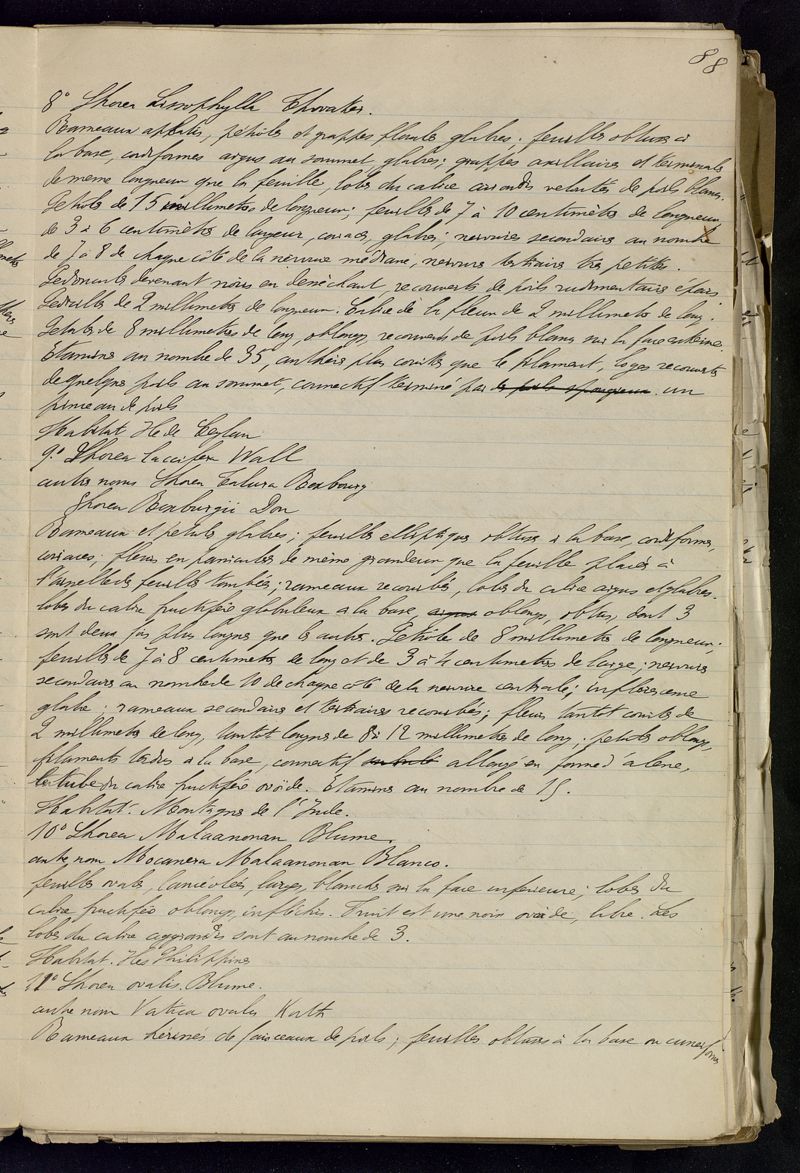 88
8° Shorea Lissophylla Thwaites.
Rameaux aplatis, pétioles et grappes florales glabres; feuilles obtuses à
la base, cordiformes aigues au sommet, glabres; grappes axillaires et terminales
de même longueur que la feuille, lobes du calice arrondis veloutés de poils blancs.
Petiole de 15 millimetres de longueur; feuilles de 7 à 10 centimètres de longueur
de 3 à 6 centimètres de largeur, coriaces, glabres; nervures secondaires au nombre
de 7 à 8 de chaque côté de la nervure médiane, nervures tertiaires très petites.
Pedoncules devenant noirs en desséchant, recouverts de poils rudimentaires épars
Pedicelles de 2 millimetres de longueur. Calice de la fleur de 2 millimetres de long;
Petales de 8 millimetres de long, oblongs, recouverts de poils blancs sur la face externe.
Etamines au nombre de 35, anthères plus courtes que le filament, loges recouvertes
de quelques poils au sommet, connectif terminé par un
pinceau de poils
Habitat Ile de Ceylan
9° Shorea laccifera Wall
autres noms Shorea Talura Roxbourg
Shorea Roxburgii Don
Rameaux et petales glabres; feuilles elliptiques obtuses à la base, cordiformes,
coriaces; fleurs en panicules de même grandeur que la feuille placées à
l'aisselle des feuilles tombées; rameaux recourbés, lobes du calice aigus et glabres.
lobes du calice fructifère globuleux à la base, oblongs, obtus, dont 3
sont deux fois plus longues que les autres. Petiole de 8 millimetres de longueur;
feuilles de 7 à 8 centimetres de long et de 3 à 4 centimetres de large; nervures
secondaires au nombre de 10 de chaque côté de la nervure centrale; inflorescence
glabre; rameaux secondaires et tertiaires recourbés; fleurs tantot courtes de
2 millimetres de long, tantot longues de 8 à 12 millimetres de long; petales oblongs,
filaments tordus à la base, connectif allongé en forme d'alène,
le tube du calice fructifère ovoïde. Etamines au nombre de 15.
Habitat. Montagnes de l'Inde.
10° Shorea Malaanonan Blume.
autre nom Mocanera Malaanonan Blanco.
feuilles ovales, lancéolées, larges, blanches sur la face inferieure; lobes du
calice fructifère oblongs, infléchis. Fruit est une noix ovoïde, libre. Les
lobes du calice aggrandis sont au nombre de 3.
Habitat. Iles Philippines
11° Shorea ovalis Blume.
autre nom Vatica ovalis Korth
Rameaux hérissés de faisceaux de poils; feuilles obtuses à la base ou cunéiformes